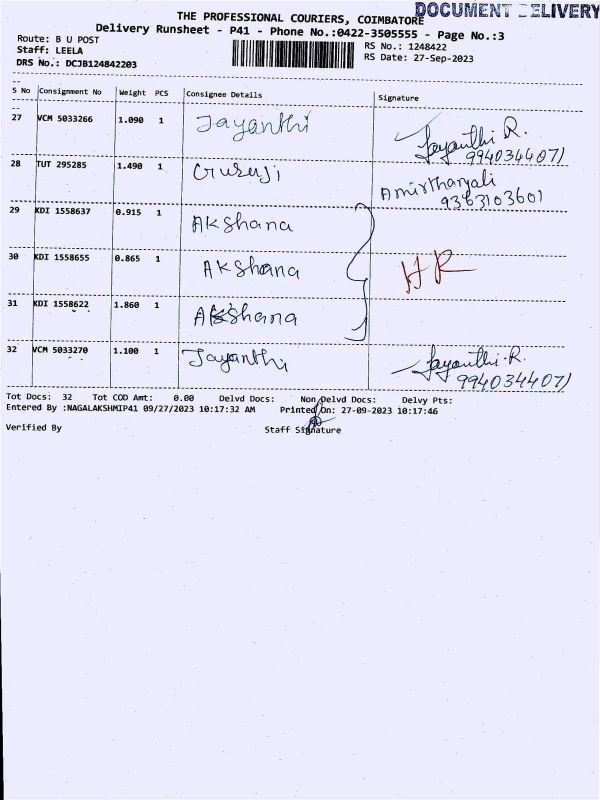 DOCUMENT DELIVERY
THE PROFESSIONAL COURIERS, COIMBATORE
Delivery Runsheet - P41 - Phone No.:0422-3505555 - Page No.:3
Route: B U POST RS No.: 1248422
Staff: LEELA RS Date: 27-Sep-2023
DRS No.: DCJB124842203
S No Consignment No Weight PCS Consignee Details Signature
27 VCM 5033266 1.090 1 Jayanthi Jayanthi R.
9940344071
28 TUT 295285 1.490 1 Guruji Amirthanjali
9363103601
29 KDI 1558637 0.915 1 Akshana
30 KDI 1558655 0.865 1 Akshana HR
31 KDI 1558622 1.860 1 Akshana
32 VCM 5033270 1.100 1 Jayanthi Jayanthi.R.
9940344071
Tot Docs: 32 Tot COD Amt: 0.00 Delvd Docs: Non Delvd Docs: Delvy Pts:
Entered By :NAGALAKSHMIP41 09/27/2023 10:17:32 AM Printed On: 27-09-2023 10:17:46
Verified By Staff Signature